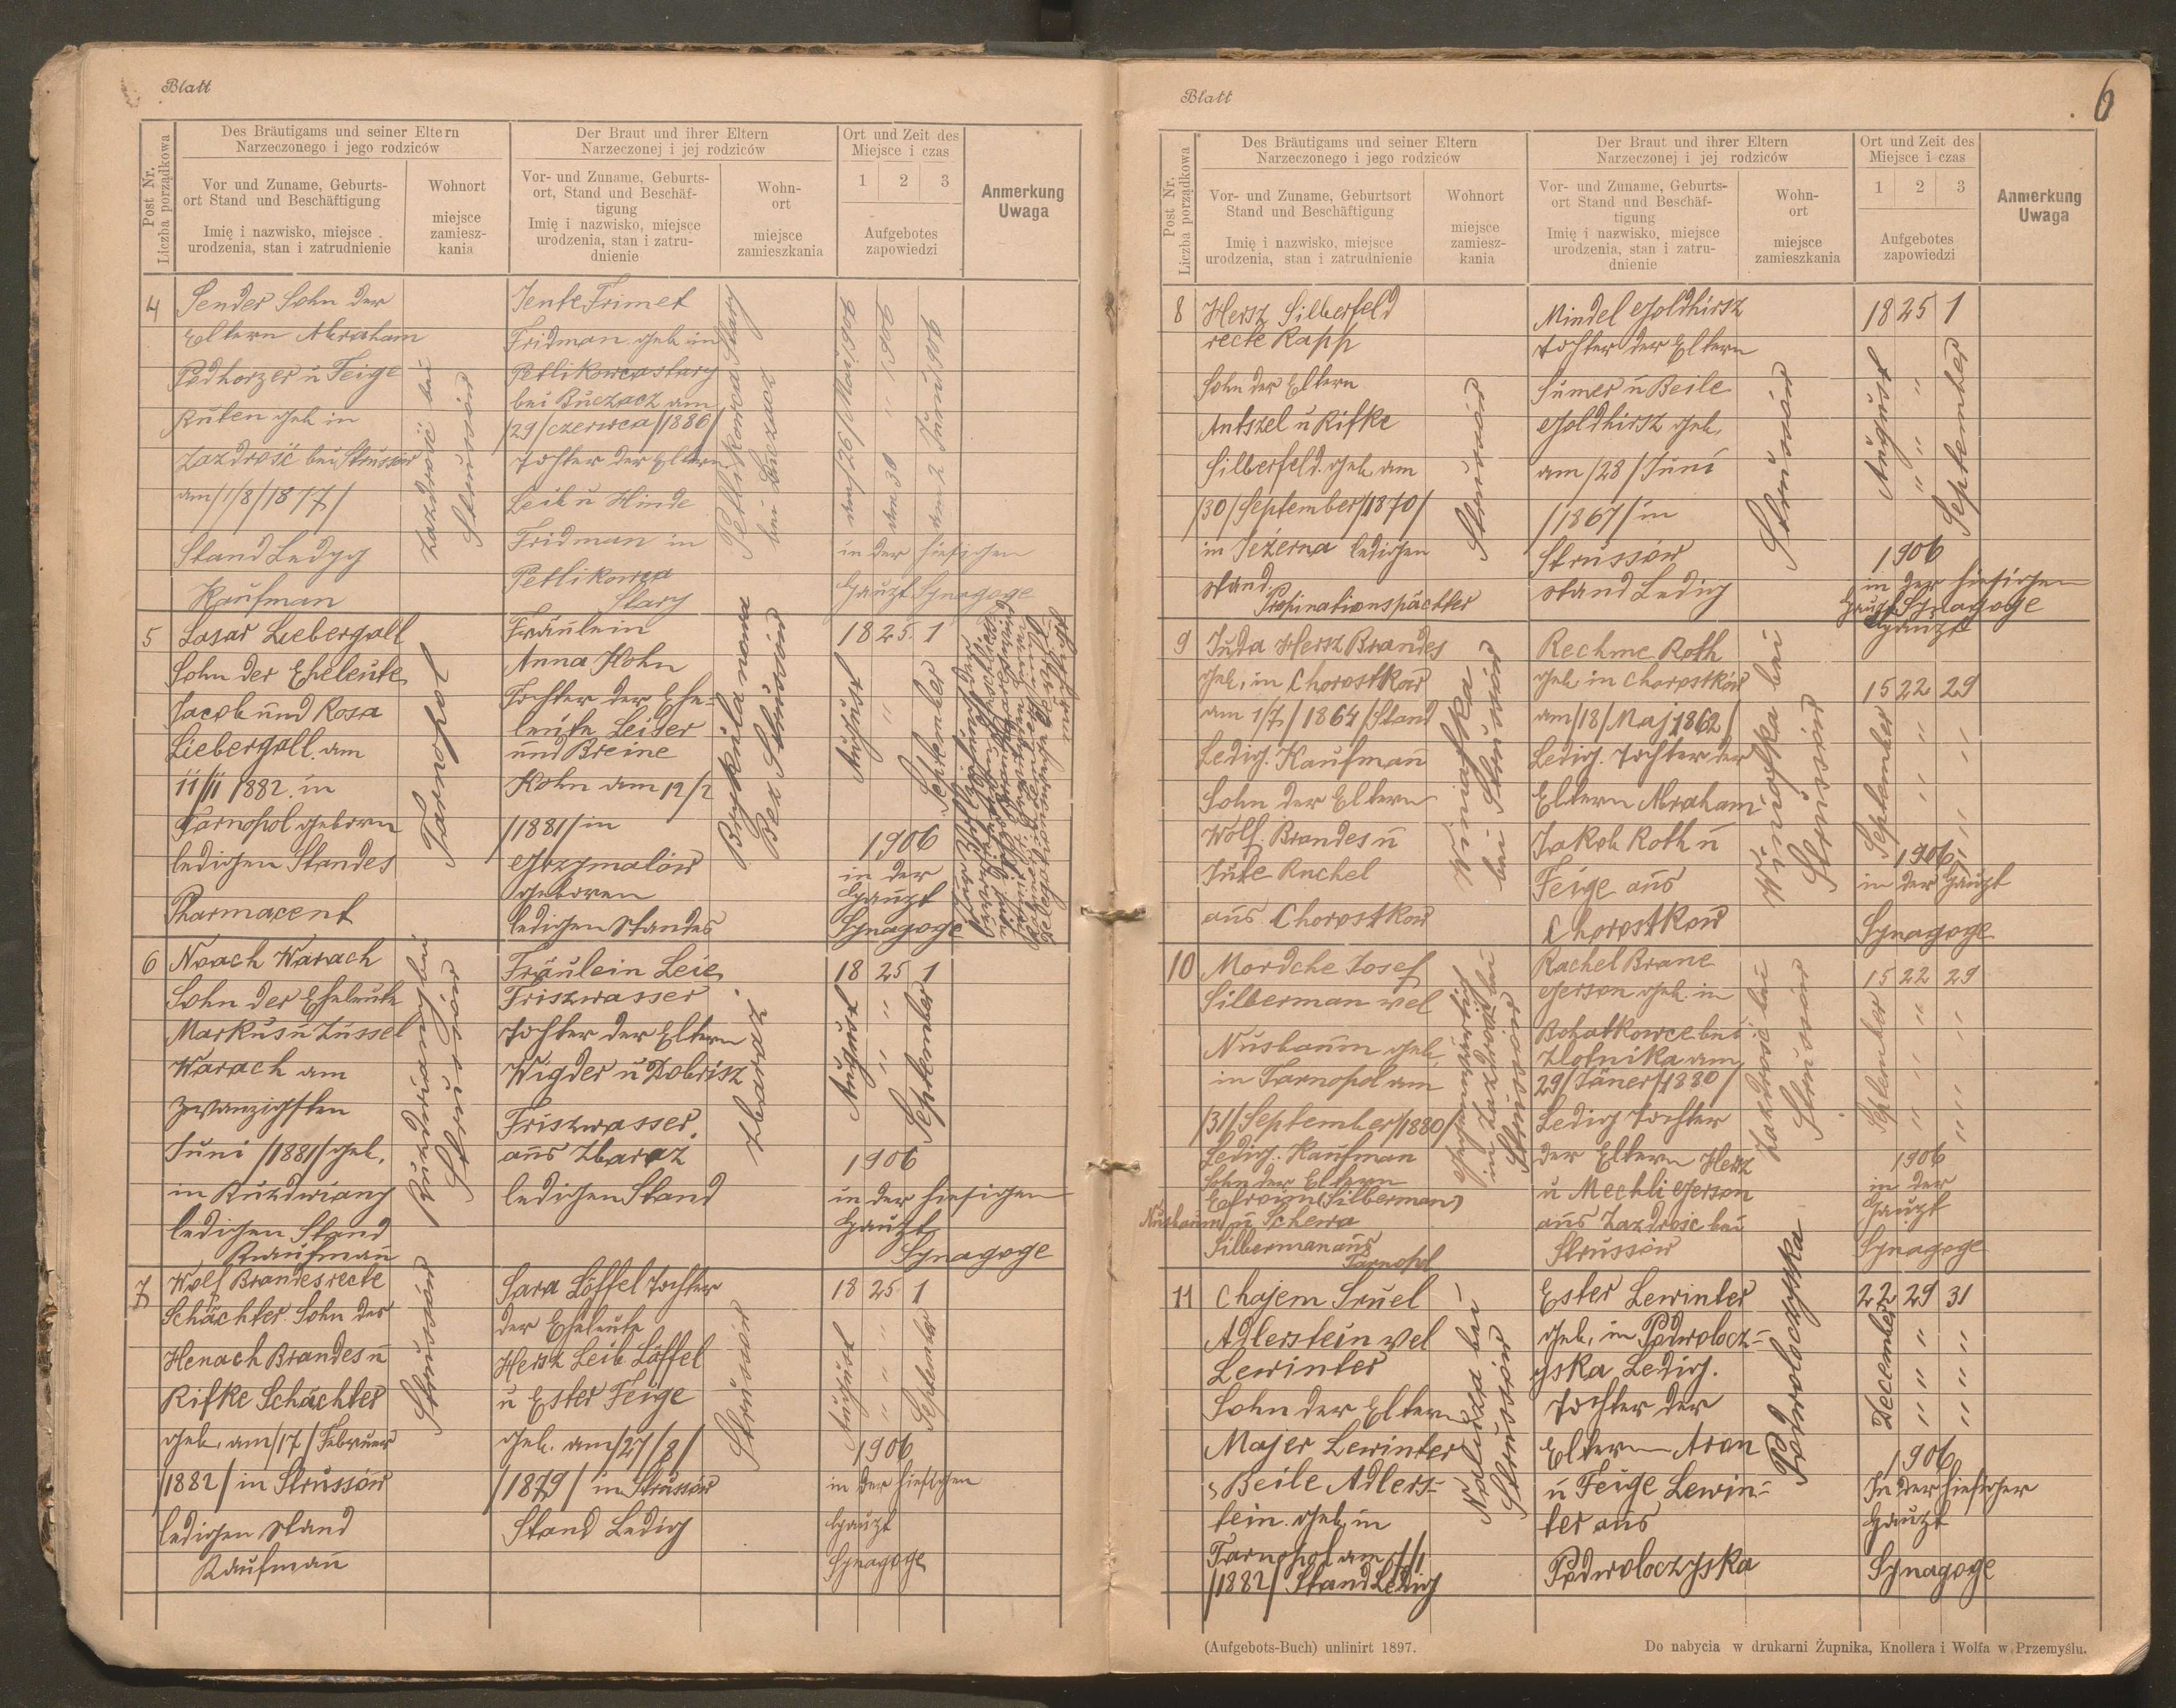 Blatt
Post Nr.
Liczba porządkowa
Des Bräutigams und seiner Eltern
Narzeczonego i jego rodziców
Der Braut und ihrer Eltern
Narzeczonej i jej rodziców
Ort und Zeit des
Miejsce i czas
Vor und Zuname, Geburts-
ort Stand und Beschäftigung
Imię i nazwisko, miejsce
urodzenia, stan i zatrudnienie
Wohnort
miejsce
zamiesz-
kania
Vor- und Zuname, Geburts-
ort, Stand und Beschäf-
tigung
Imię i nazwisko, miejsce
urodzenia, stan i zatru-
dnienie
Wohn-
ort
miejsce
zamieszkania
1 2 3
Aufgebotes
zapowiedzi
Anmerkung
Uwaga
4
Sender Sohn der
Eltern Abraham
Podhorzer u Feige
Ruten geb in
Zazdrość bei Strussow
am /1/8/18 /
Stand Ledyg
Kaufman
Zazdrość bei
Strussów
Jente Frimet
Fridman geb in
Petlikowce stary
bei Buczacz am
/29/czerwca/1886/
Tochter der Eltern
Leib u Hinde
Fridman in
Petlikowce
Stary
Petlikowce Stary
bei Buczacz
am /26/ Mai 1906
am 30 " 1906
am 2 Juni 1906
in der hiesigen
Haupt Synagoge
5
Lasar Liebergall
Sohn der Eheleute
Jacob und Rosa
Liebergall. am
11/11 1882. in
Tarnopol geborn
ledigen Standes
Pharmacent
Tarnopol
Fräulein
Anna Kohn
Tochter der Ehe-
leute Leiser
und Breine
Kohn am 12/2
/1881/ in
Grzymałów
geboren
ledigen Standes
Bez Strussów
18 25 1
August " September
1906
in der
Haupt
Synagoge
6
Noach Warach
Sohn der Eheleute
Markus u Züssel
Warach am
zwanzigsten
Juni /1881/ geb.
in Ruzdwiany
ledigen Stand
Kaufmann
Ruzdwiany bei
Strussów
Fräulein Leie
Friszwasser
Tochter der Eltern
Wigder u Dobrisz
Friszwasser
aus Zbaraż
ledigen Stand
Zbaraż
18 25 1
August " " September
1906
in der hiesigen
Haupt
Synagoge
7
Wolf Brandes recte
Schächter Sohn der
Henach Brandes u
Rifke Schächter
geb. am /17/ Februer
/1882/ in Strussów
ledigen Stand
Kaufmann
Strussów
Sara Löffel Tochter
der Eheleute
Hersz Leib Löffel
u Ester Feige
geb. am /27/8/
/1879/ in Strussów
Stand Ledig
Strussów
18 25 1
August " " " September
1906
in der hiesigen
Haupt
Synagoge
Blatt
6
Post Nr.
Liczba porządkowa
Des Bräutigams und seiner Eltern
Narzeczonego i jego rodziców
Der Braut und ihrer Eltern
Narzeczonej i jej rodziców
Ort und Zeit des
Miejsce i czas
Vor- und Zuname, Geburtsort
Stand und Beschäftigung
Imię i nazwisko, miejsce
urodzenia, stan i zatrudnienie
Wohnort
miejsce
zamiesz-
kania
Vor- und Zuname, Geburts-
ort Stand und Beschäf-
tigung
Imię i nazwisko, miejsce
urodzenia, stan i zatru-
dnienie
Wohn-
ort
miejsce
zamieszkania
1 2 3
Aufgebotes
zapowiedzi
Anmerkung
Uwaga
8
Hersz Silberfeld
recte Rapp
Sohn der Eltern
Antszel u Rifke
Silberfeld. geb. am
/30/September/1870/
in Jezerna ledigen
stand.
Propinationspächter
Strussów
Mindel Goldhirsz
Tochter der Eltern
Sumer u Beile
Goldhirsz geb.
am /28/ Juni
/1867/ in
Strussów
stand Ledig
Strussów
18 25 1
August " " " September
1906
in der hiesigen
Haupt Synagoge
9
Juda Hersz Brandes
geb. in Chorostkow
am 1/7/ 1864/ Stand
Ledig. Kaufmann
Sohn der Eltern
Wolf Brandes u
Jute Ruchel
aus Chorostkow
bei Strussów
Rechme Roth
geb in Chorostków
am /18/ Maj 1862/
Ledig. Tochter der
Eltern Abraham
Jakob Roth u
Feige aus
Chorostkow
Strussów
15 22 29
September " " " "
1906
in der Haupt
Synagoge
10
Mordche Josef
Silberman vel
Nusbaum geb.
in Tarnopol am
/31/September/1880/
Ledig. Kaufman
Sohn der Eltern
Efroim (Silberman)
Nusbaum u Schewa
Silberman aus
Tarnopol
gegenwärtig
in Zazdrość bei
Strussów
Rachel Brane
Gerson geb. in
Bohatkowce bei
Zlotnika am
29/Jäner/1880/
Ledig Tochter
der Eltern Hersz
u Mechli Gerson
aus Zazdrość bei
Strussów
Zazdrość bei
Strussów
15 22 29
September " " " "
1906
in der
Haupt
Synagoge
11
Chajem Sruel
Adlerstein vel
Lewinter
Sohn der Eltern
Majer Lewinter
Beile Adlers-
tein. geb. in
Tarnopol am 1/1
/1882/ Stand Ledig
Naluza bei
Strussów
Ester Lewinter
geb. in Podwolocz-
yska Ledig.
Tochter der
Eltern Aron
u Feige Lewin-
ter aus
Podwoloczyska
Podwoloczyska
22 29 31
December " " " "
1906
In der hiesiger
Haupt
Synagoge
(Aufgebots-Buch) unlinirt 1897.
Do nabycia w drukarni Żupnika, Knollera i Wolfa w Przemyślu.